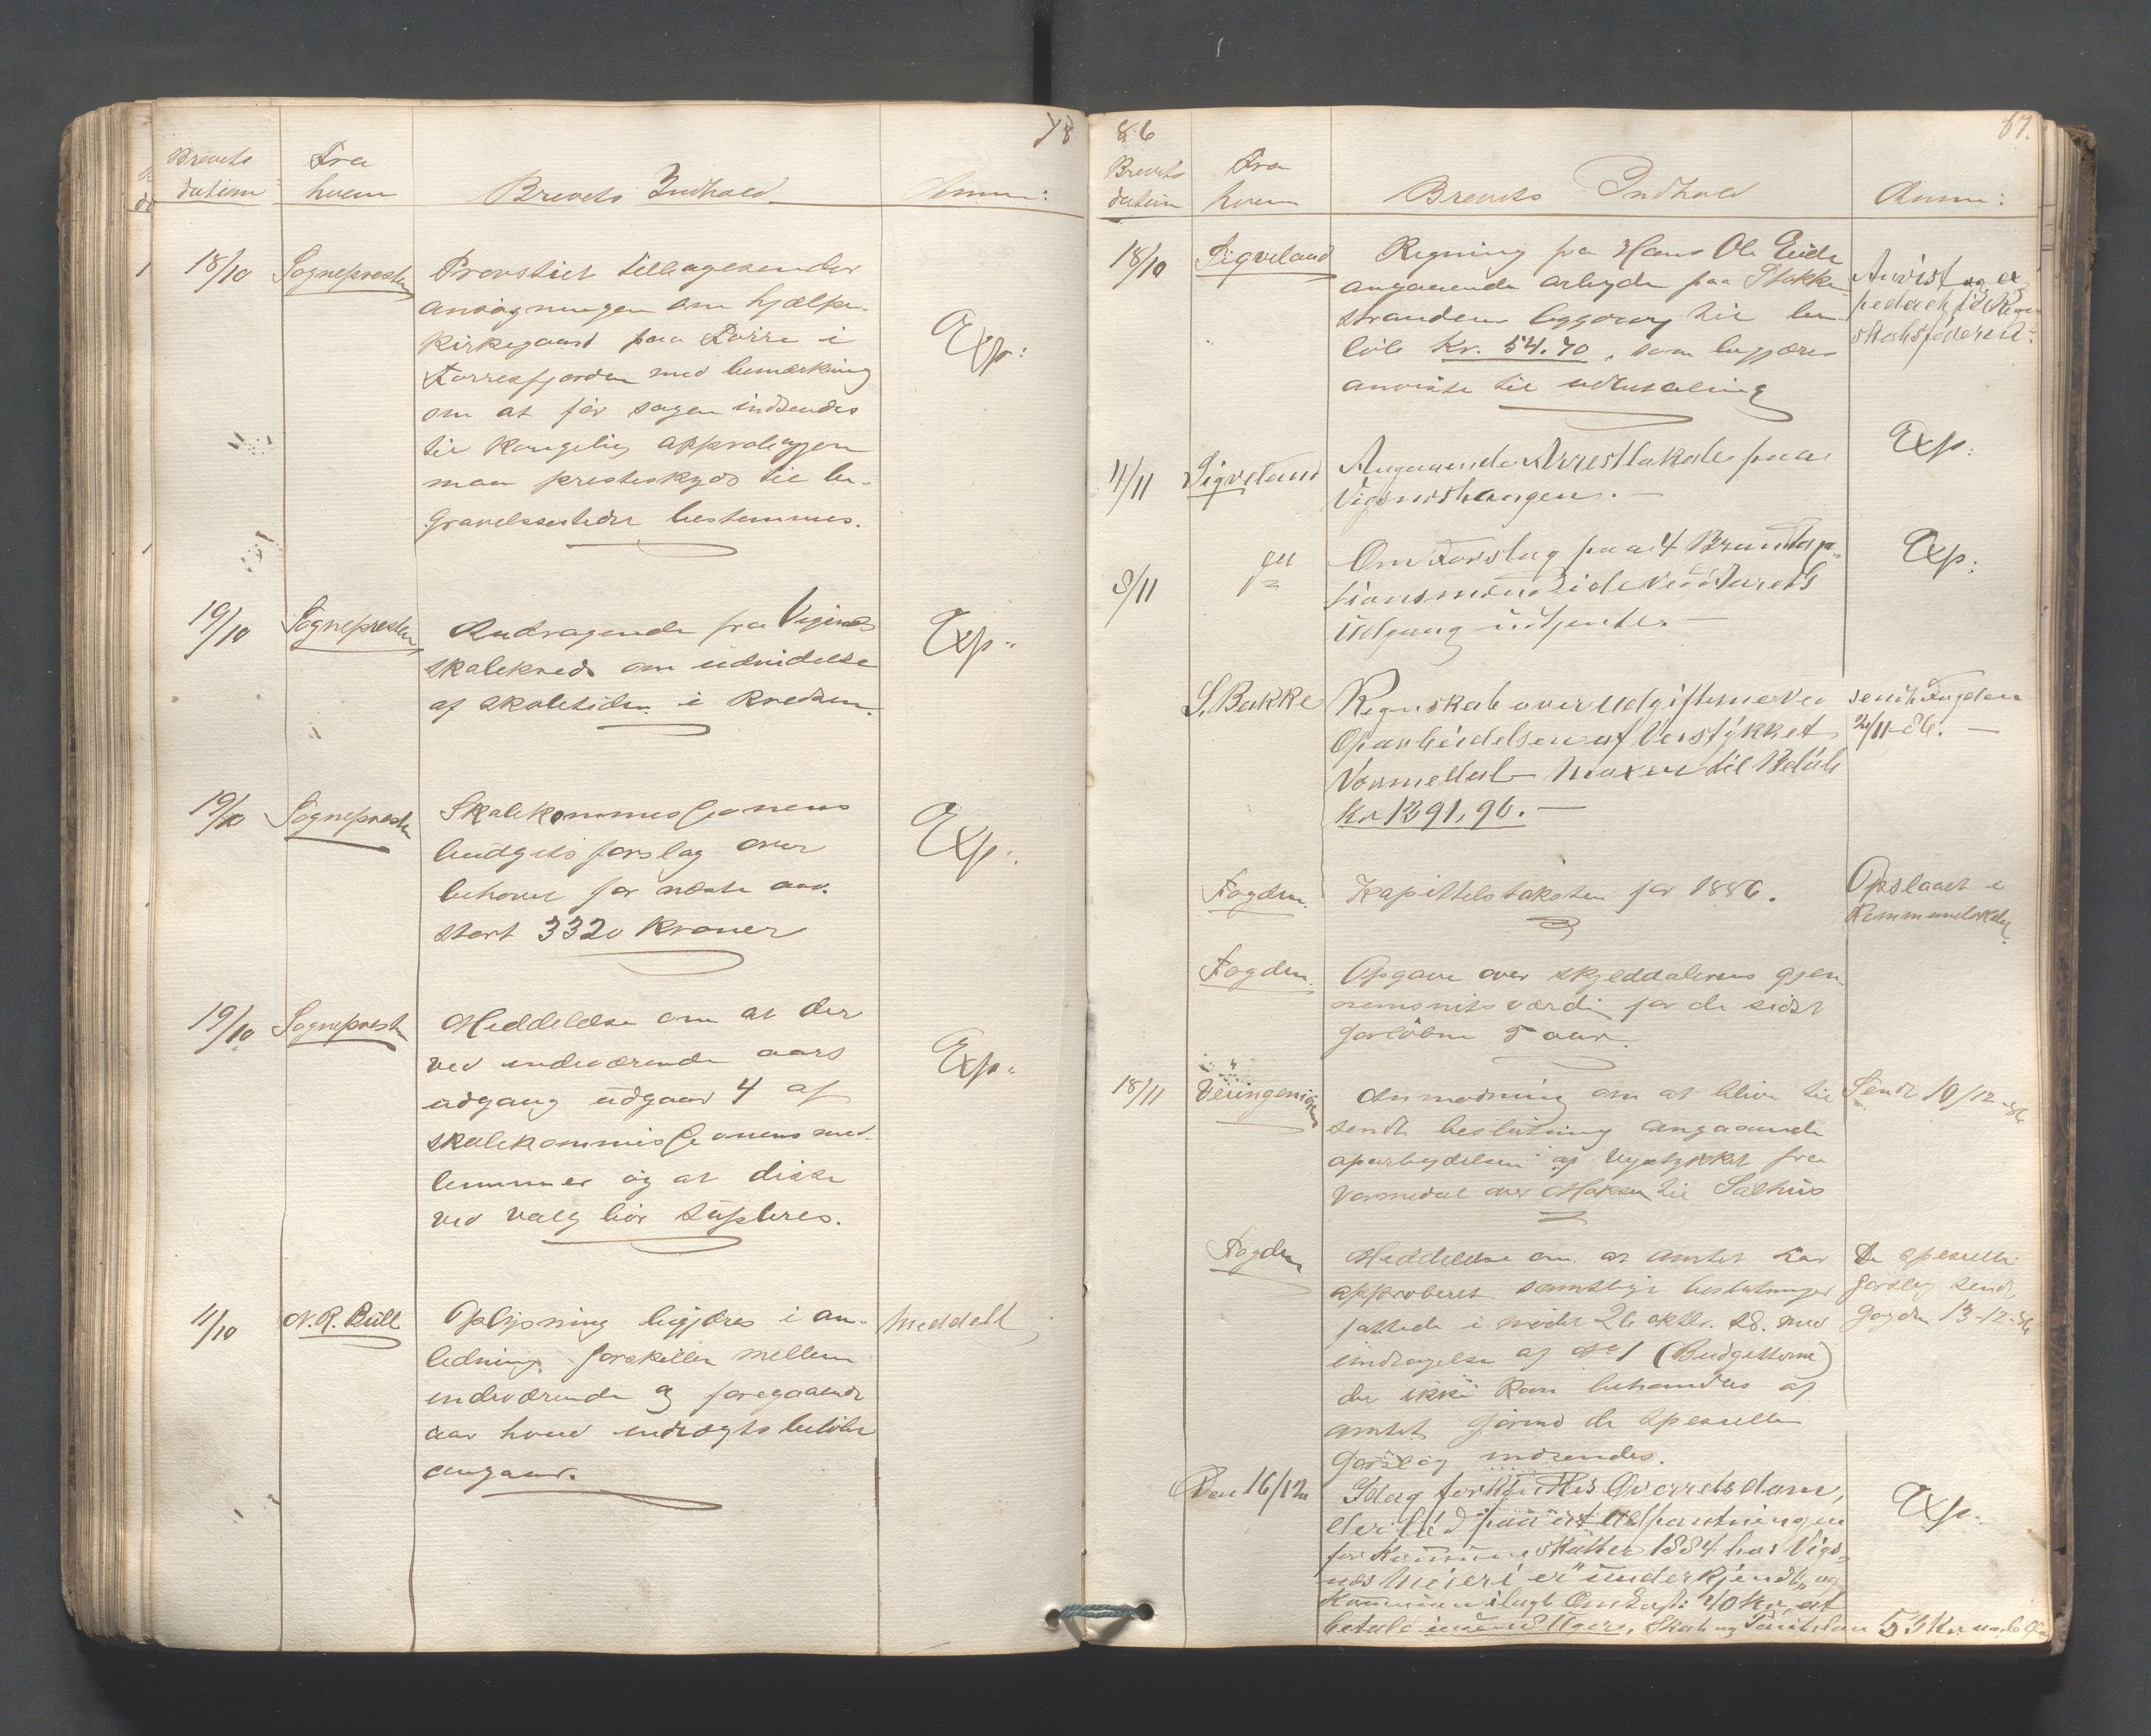 78
Brevets datum
Fra hvem
Brevets Indhold
Anm:
18/10 Sognepresten
Provstiet tilbagesender
ansøgningen om hjælpe-
kirkegaard paa Førre i
Førresfjorden med bemærkning
om at før sagen indsendes
til kongelig approbasjon
maa presteskyds til be-
gravelsesstedet bestemmes.
Exp:
19/10 Sognepresten
Andragende fra Vigsnes
skolekreds om udvidelse
af skoletiden i kredsen.
Exp:
19/10 Sognepresten
Skolekommissionens
budgetsforslag over
behovet for næste aar.
stort 3320 Kroner
Exp:
19/10 Sognepresten
Meddelelse om at der
ved indeværende aars
udgang udgaar 4 af
skolekommissionens med-
lemmer og at disse
ved valg bør supleres.
Exp:
11/10 N. R. Bull
Oplysning begjæres i an-
ledning forskellen mellem
indeværende og foregaaende
aar hvad indtægts beløbet
angaar.
meddelt
86 87.
Brevets datum
Fra hvem
Brevets Indhold
Anm:
18/10 Sigveland
Regning fra Hans Ole Eide
angaaende arbeyde paa Stokke-
strandens byggevey til be-
løb Kr. 54.70, som begjæres
anviste til udbetaling
Anvist og ex
pederet til Regn
skabsføreren.
4/11 Sigveland
Angaaende Arrestlokale paa
Vigsneshaugen. —
Exp:
8/11
Om Forslag paa 4 Brandtap-
tionsmænd i de ved Aarets
Udgang udtjente. —
Exp:
S. Bakke
Regnskab over Udgifterne ved
Oparbeidelsen af Veistykket
Vormedal – Moxen til Beløb
Kr 1291,96. —
sendt Fogden
/11-86. —
Fogden
Kapittelstaksten for 1886.
Opslaaet i
Kommunelokalet.
Fogden
Opgave over skjeddalerens gjen
nemsnitsværdi for de sidst
forløbne 5 aar.
18/11 Veiingeniøren
Anmodning om at blive til
sendt beslutning angaaende
oparbeydelsen af veystykket fra
Vormedal over Moksen til Salhus
Sendt 10/12-86
Fogden
Meddelelse om at amtet har
approberet samtlige beslutninger
fattede i mødet 26 oktbr. d8. med
undtagelse af No 1 (Budgetterne)
der ikke kan behandles af
amtet førend de spesielle
forslag indsendes.
De spesielle
forslag sendt
Fogden 13-12-86
Den 16/12
Idag forkyndtes Overretsdom,
der lød paa at Udpantningen
for Kommuneskatter 1884 hos Vigs-
nes Meieri er "underkjendt" og
Kommunen ilagt Omkost: 40 Kr, at
betale inden 8 Dage, Skat og 53 Kr
Exp.